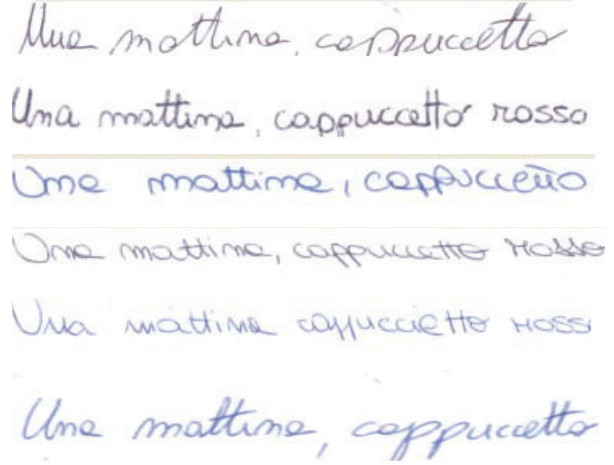 Una mattina, cappuccetto
Una mattina, cappuccetto rosso
Una mattina, cappuccetto
Una mattina, cappuccetto rosso
Una mattina cappuccietto rosso
Una mattina, cappuccetto